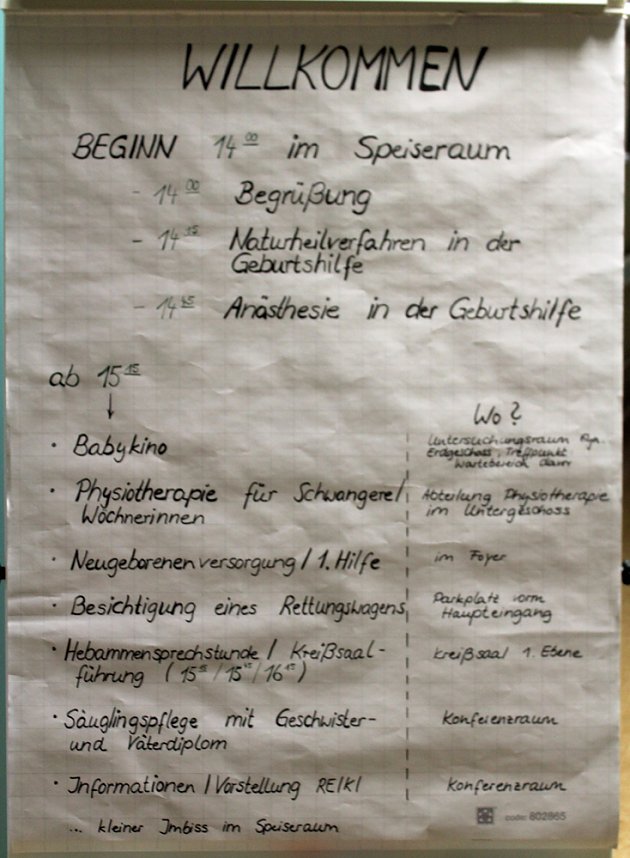 WILLKOMMEN
BEGINN 14 00 im Speiseraum
- 14 00 Begrüßung
- 14 15 Naturheilverfahren in der
Geburtshilfe
- 14 45 Anästhesie in der Geburtshilfe
ab 15 15
↓
Wo?
• Babykino
Untersuchungsraum Gyn.
Erdgeschoss, Treffpunkt
Wartebereich davor
• Physiotherapie für Schwangere/
Wöchnerinnen
Abteilung Physiotherapie
im Untergeschoss
• Neugeborenenversorgung / 1. Hilfe
im Foyer
• Besichtigung eines Rettungswagens
Parkplatz vorm
Haupteingang
• Hebammensprechstunde / Kreißsaal-
führung (15 15 / 15 45 / 16 15)
Kreißsaal 1. Ebene
• Säuglingspflege mit Geschwister-
und Väterdiplom
Konferenzraum
• Informationen / Vorstellung REIKI
Konferenzraum
... kleiner Imbiss im Speiseraum
code: 802865